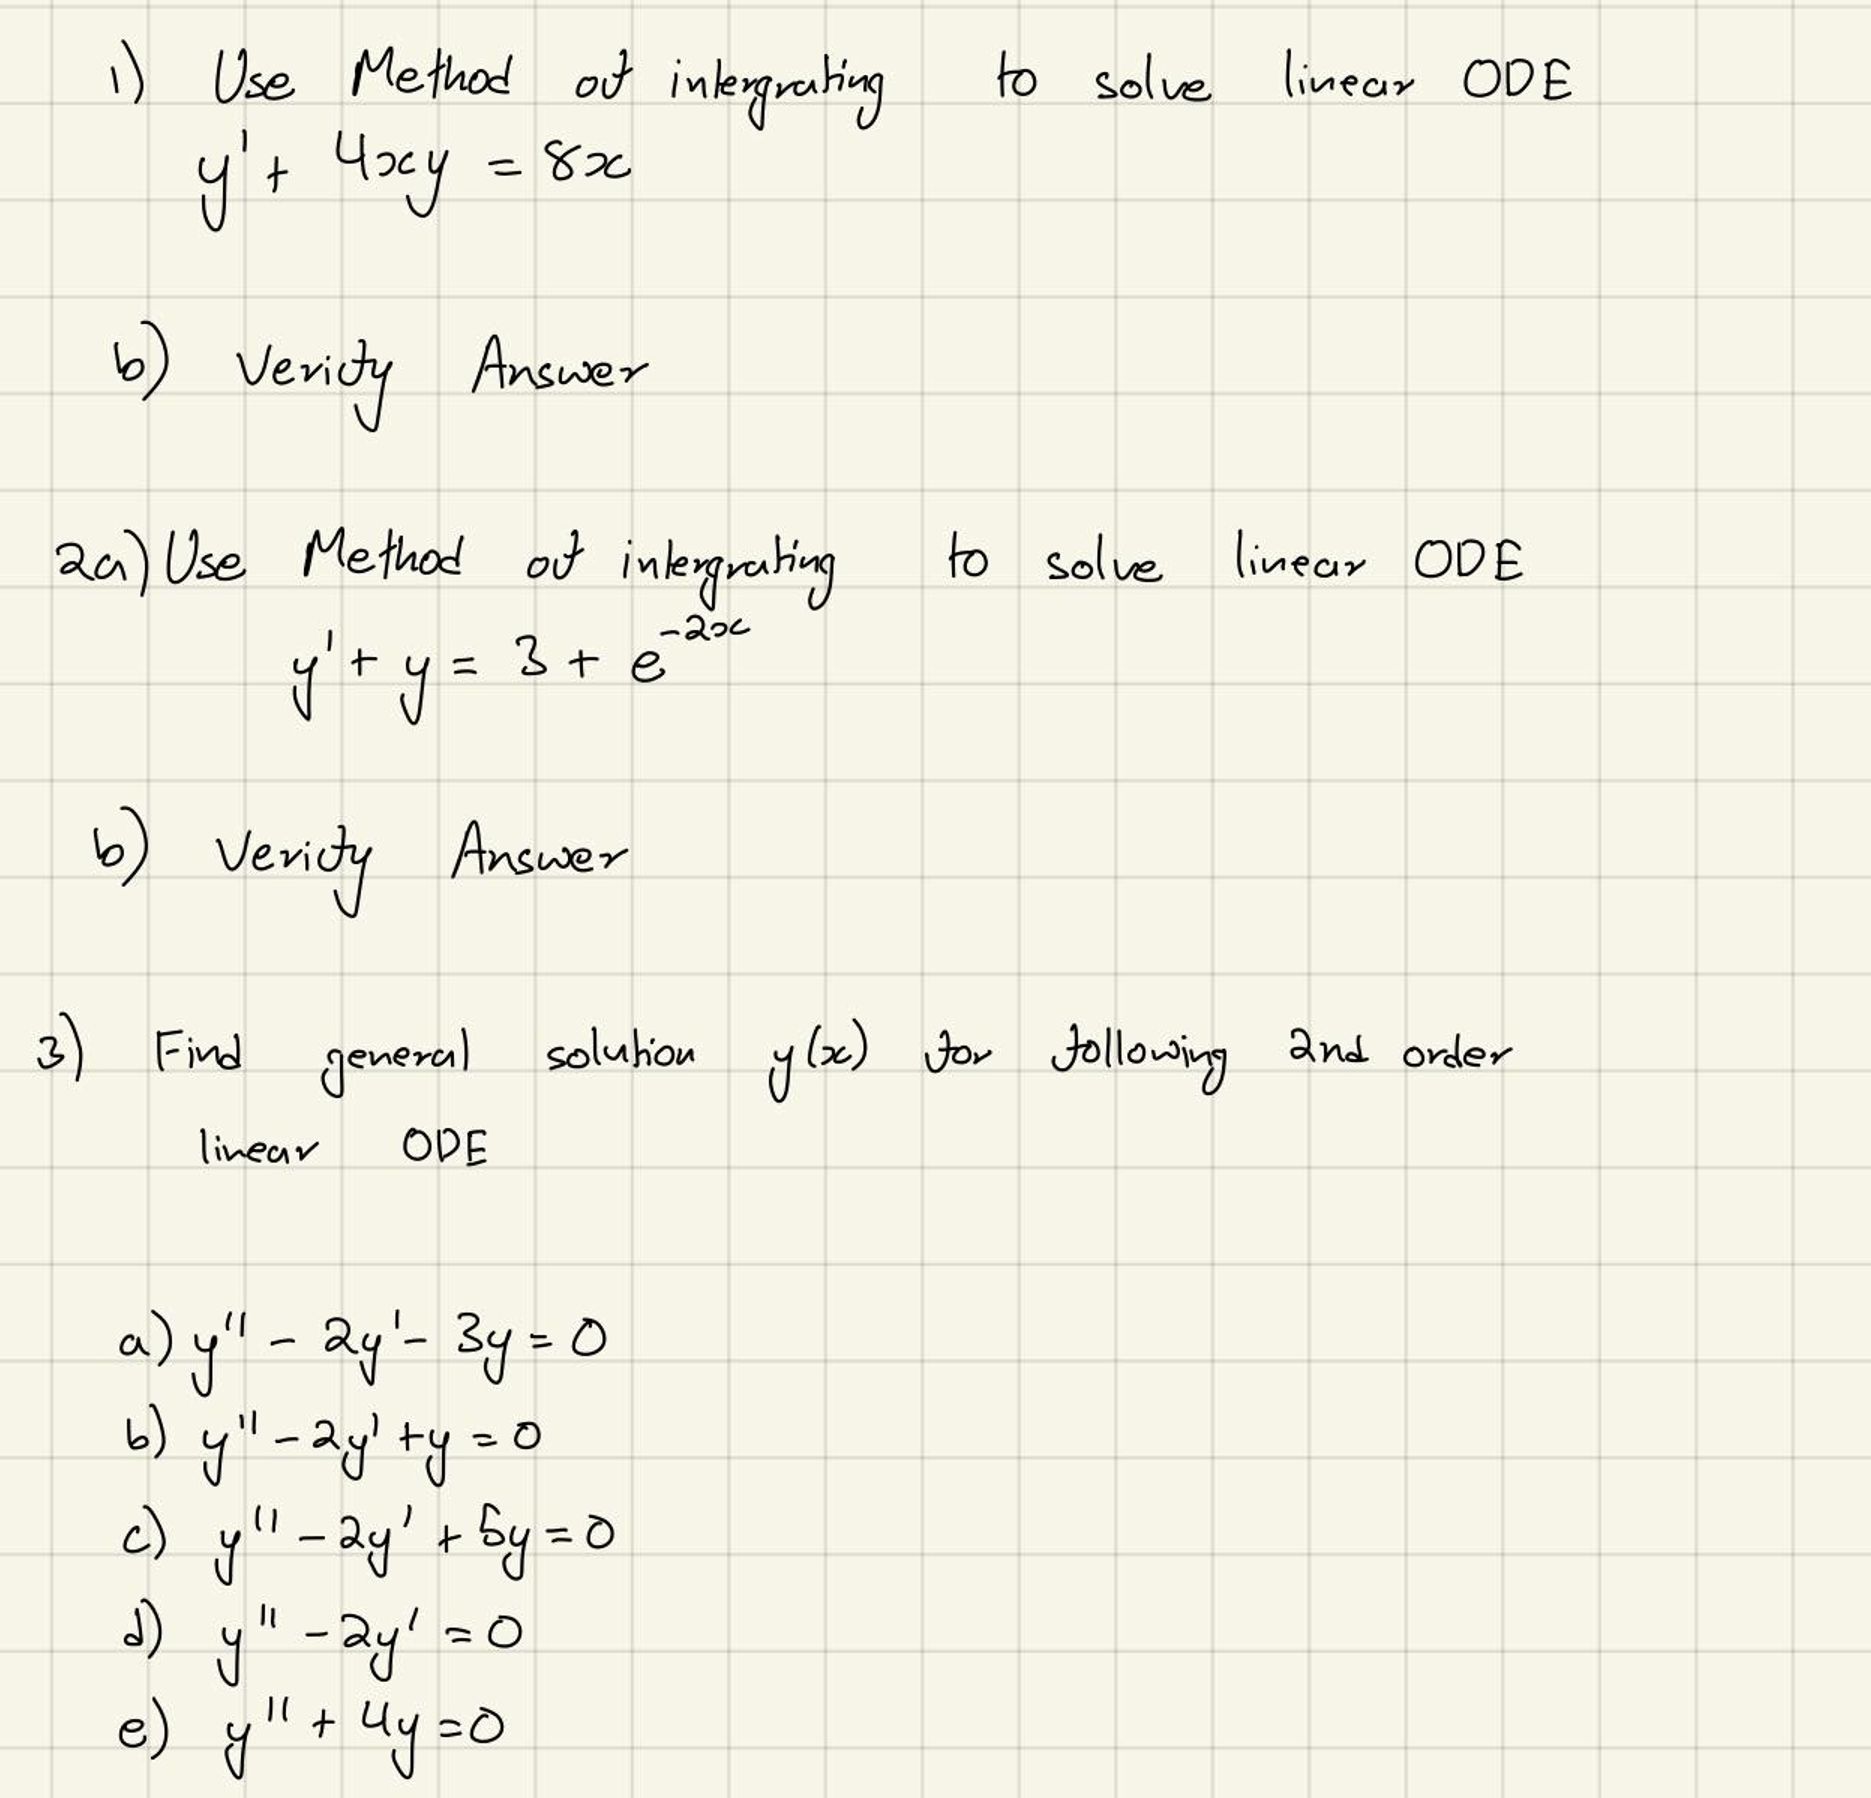 1) Use Method of intergrating to solve linear ODE
y' + 4xy = 8x
b) Verify Answer
2a) Use Method of intergrating to solve linear ODE
y' + y = 3 + e^{-2x}
b) Verify Answer
3) Find general solution y(x) for following 2nd order
linear ODE
a) y'' - 2y' - 3y = 0
b) y'' - 2y' + y = 0
c) y'' - 2y' + 5y = 0
d) y'' - 2y' = 0
e) y'' + 4y = 0